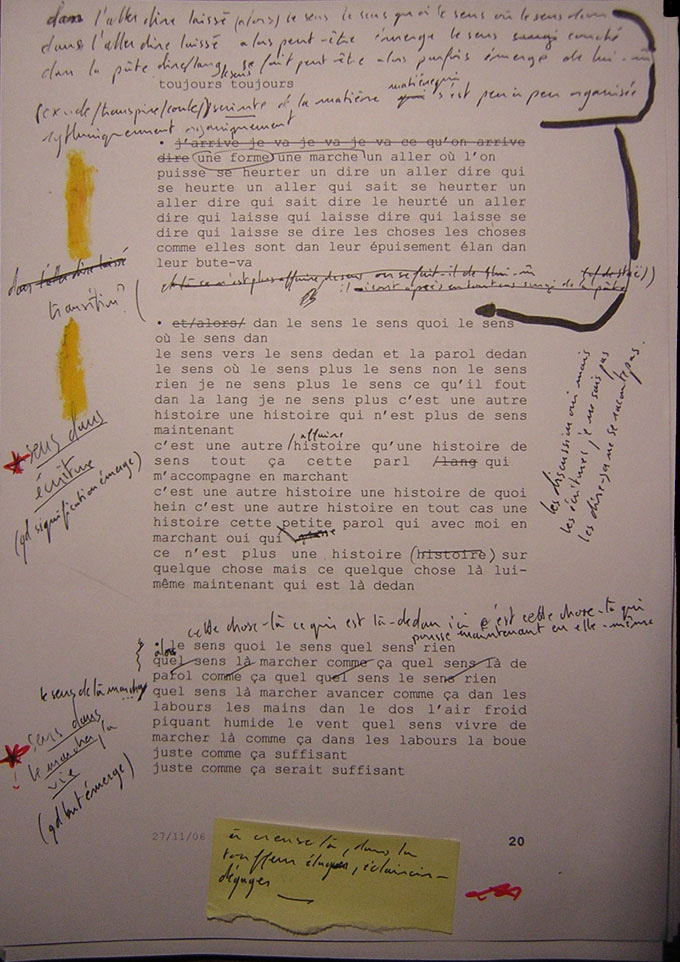 dans l'aller dire laissé (alors) le sens le sens quoi le sens où le sens dan
dans l'aller dire laissé alors peut-être émerge le sens couché
dan la pâte dire/lang se fait peut-être alors parfois émergé de lui-m
le sens
toujours toujours
matière qui
(exsude/transpire/coule/) suinte de la matière qui s'est peu à peu organisée
rythmiquement organiquement
• j'arrive je va je va je va ce qu'on arrive
dire une forme une marche un aller où l'on
puisse se heurter un dire un aller dire qui
se heurte un aller qui sait se heurter un
aller dire qui sait dire le heurté un aller
dire qui laisse qui laisse dire qui laisse se
dire qui laisse se dire les choses les choses
comme elles sont dan leur épuisement élan dan
leur bute-va
dans l'aller dire laissé
transition?
• et/alors/ dan le sens le sens quoi le sens
où le sens dan
le sens vers le sens dedan et la parol dedan
le sens où le sens plus le sens non le sens
rien je ne sens plus le sens ce qu'il fout
dan la lang je ne sens plus c'est une autre
histoire une histoire qui n'est plus de sens
maintenant
affaire
c'est une autre /histoire qu'une histoire de
sens tout ça cette parl /lang qui
m'accompagne en marchant
c'est une autre histoire une histoire de quoi
hein c'est une autre histoire en tout cas une
histoire cette petite parol qui avec moi en
marchant oui qui
ce n'est plus une histoire (histoire) sur
quelque chose mais ce quelque chose là lui-
même maintenant qui est là dedan
sens dans
écriture
(gd signification émerge)
les discussion oui mais
les écritures je ne sais pas
les dire ça ne se raconte pas.
cette chose-là ce qui est là-dedan ici c'est cette chose-là qui
pousse maintenant en elle-même
• le sens quoi le sens quel sens rien
alors
quel sens là marcher comme ça quel sens là de
parol comme ça quel quel sens le sens rien
quel sens là marcher avancer comme ça dan les
labours les mains dan le dos l'air froid
piquant humide le vent quel sens vivre de
marcher là comme ça dans les labours la boue
juste comme ça suffisant
juste comme ça serait suffisant
le sens de là marcher
sens dans
le marcher
vie
(gd but émerge)
27/11/06
20
à creuser là, dans la
touffeur élaguer, éclaircir-
dégager